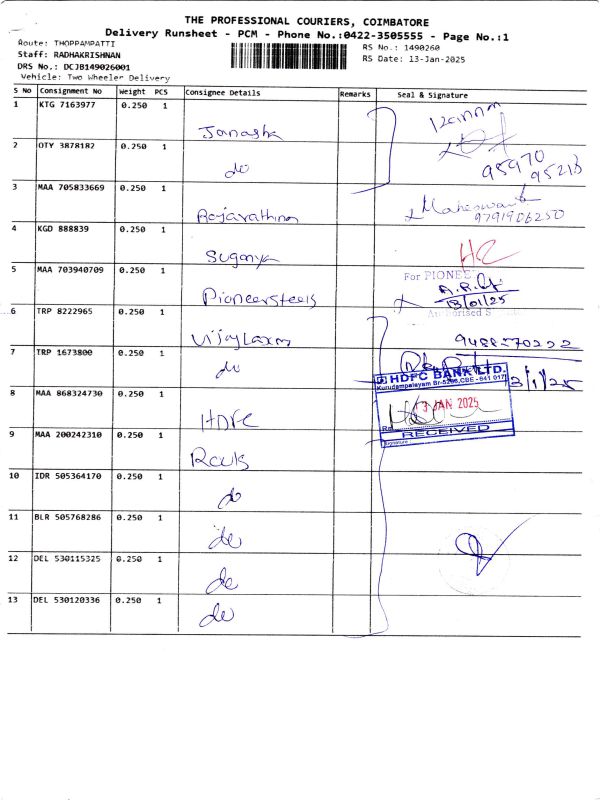 THE PROFESSIONAL COURIERS, COIMBATORE
Delivery Runsheet - PCM - Phone No.:0422-3505555 - Page No.:1
Route: THOPPAMPATTI
RS No.: 1490260
Staff: RADHAKRISHNAN
RS Date: 13-Jan-2025
DRS No.: DCJB149026001
Vehicle: Two Wheeler Delivery
S No Consignment No Weight PCS Consignee Details Remarks Seal & Signature
1 KTG 7163977 0.250 1
2 OTY 3878182 0.250 1
do
95970
95213
3 MAA 705833669 0.250 1
Rajarathinam
Maheswari
9791906250
4 KGD 888839 0.250 1
Suganya
5 MAA 703940709 0.250 1
Pioneersteels
For PIONEE
13/01/25
Authorised S
6 TRP 8222965 0.250 1
VijayLaxmi
9488570222
7 TRP 1673800 0.250 1
do
HDFC BANK LTD.
Kurudampalayam Br-5286,CBE-641 017
13/1/25
8 MAA 868324730 0.250 1
HDFC
3 JAN 2025
RECEIVED
Signature
9 MAA 200242310 0.250 1
10 IDR 505364170 0.250 1
do
11 BLR 505768286 0.250 1
do
12 DEL 530115325 0.250 1
do
13 DEL 530120336 0.250 1
do